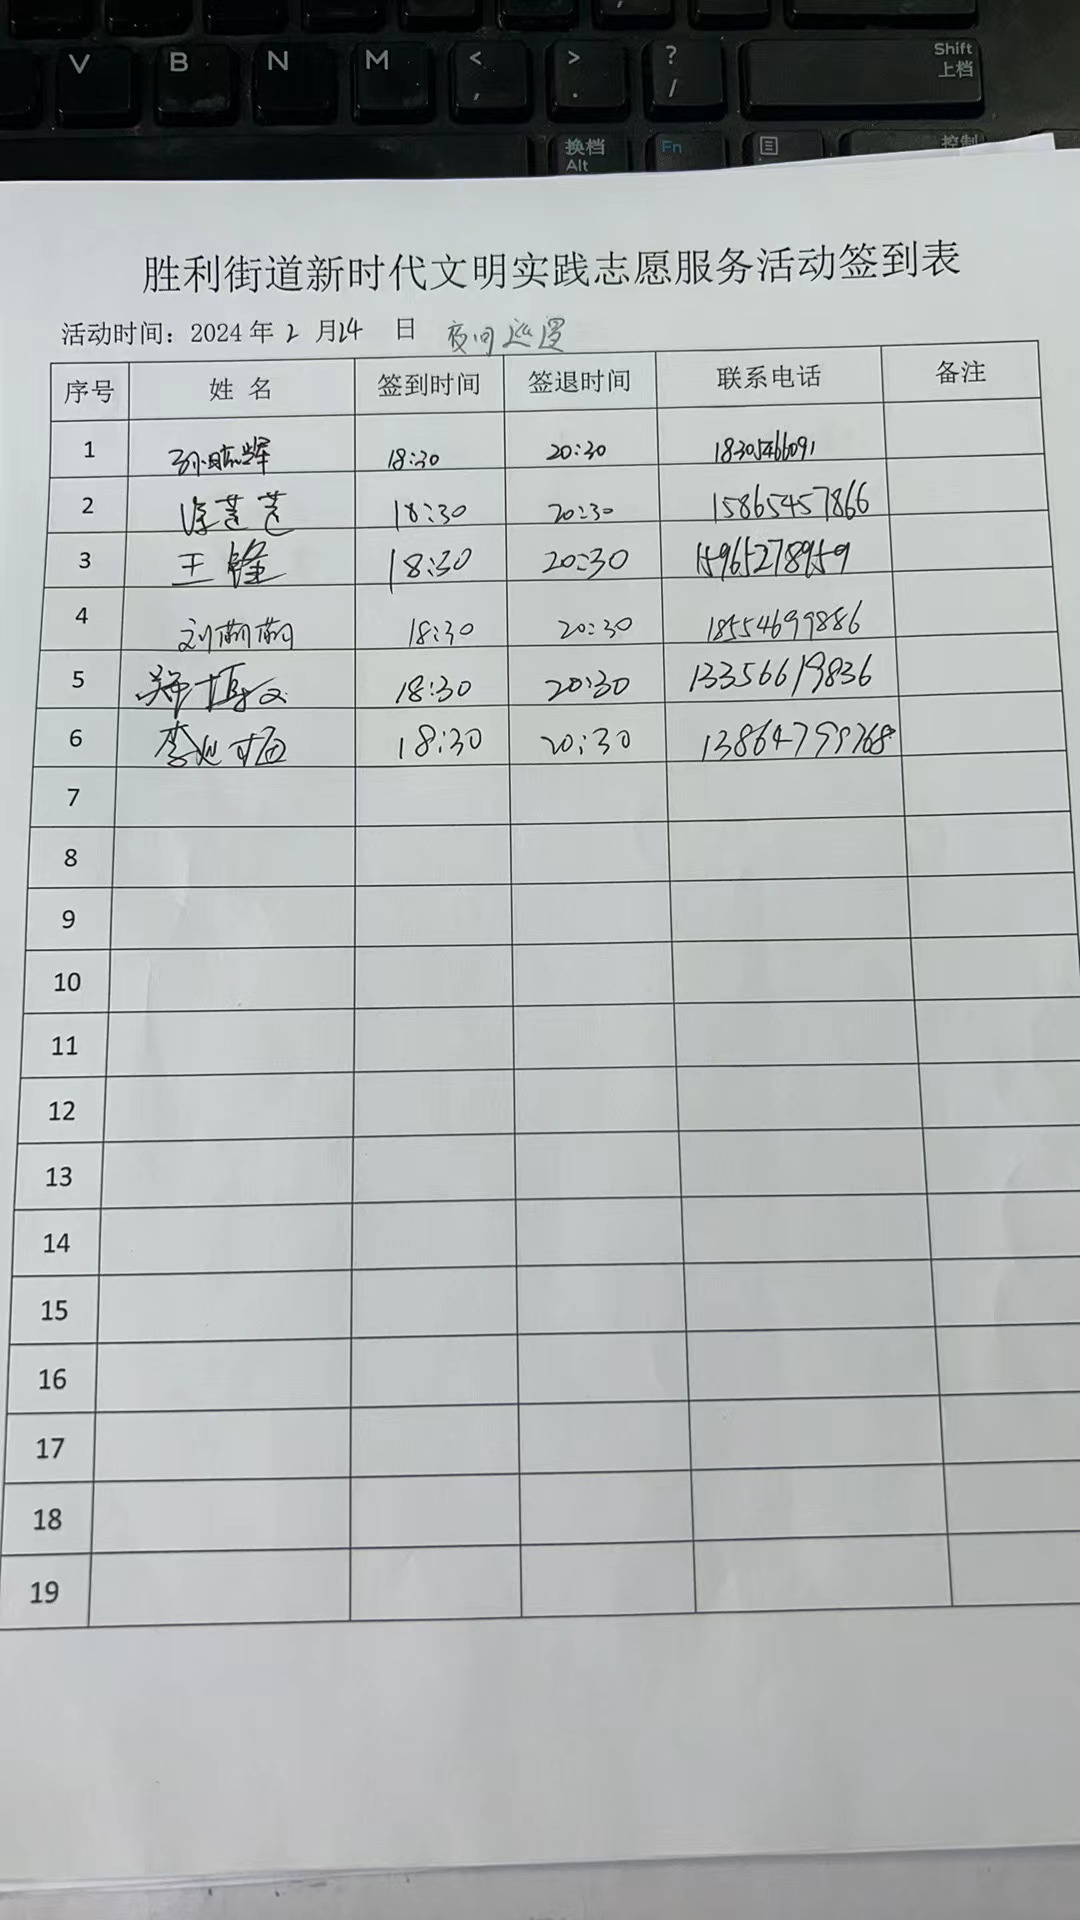 V B N M < , > . ? / Shift 上档
换档 Alt Fn 控制
胜利街道新时代文明实践志愿服务活动签到表
活动时间：2024年2月14日 夜间巡逻
序号 姓名 签到时间 签退时间 联系电话 备注
1 18:30 20:30 18305466091
2 徐芸芸 18:30 20:30 15865457866
3 王锋 18:30 20:30 15965278959
4 刘萌萌 18:30 20:30 18554699886
5 18:30 20:30 13356619836
6 18:30 20:30 13864799768
7
8
9
10
11
12
13
14
15
16
17
18
19